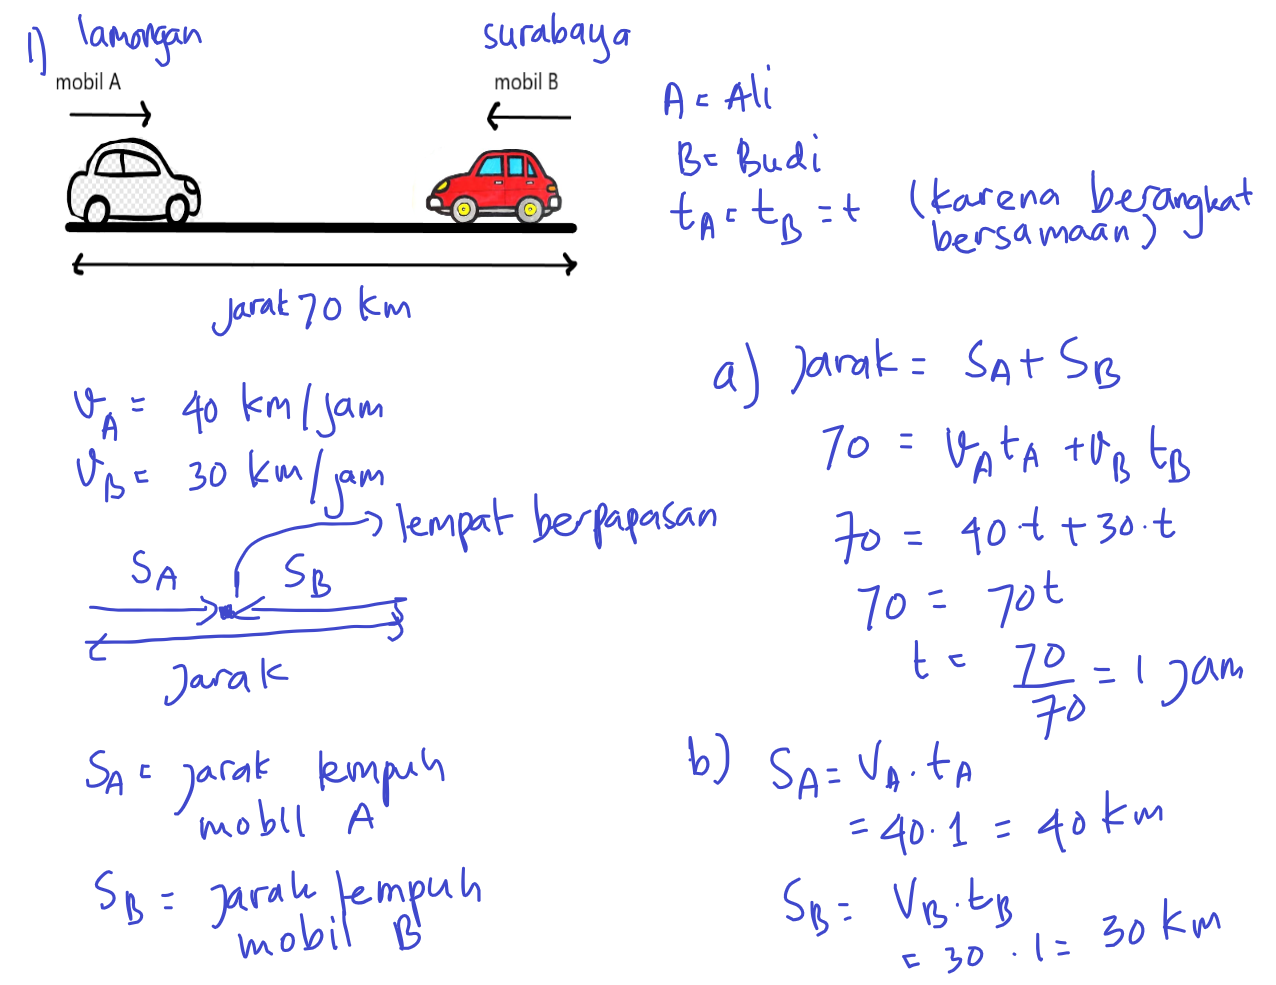 1) lamongan
surabaya
mobil A
mobil B
jarak 70 km
A = Ali
B = Budi
tA = tB = t (karena berangkat
bersamaan)
vA = 40 km/jam
vB = 30 km/jam
tempat berpapasan
SA SB
Jarak
SA = jarak tempuh
mobil A
SB = jarak tempuh
mobil B
a) jarak = SA + SB
70 = vA tA + vB tB
70 = 40·t + 30·t
70 = 70t
t = 70/70 = 1 jam
b) SA = VA·tA
= 40·1 = 40 km
SB = VB·tB
= 30·1 = 30 km